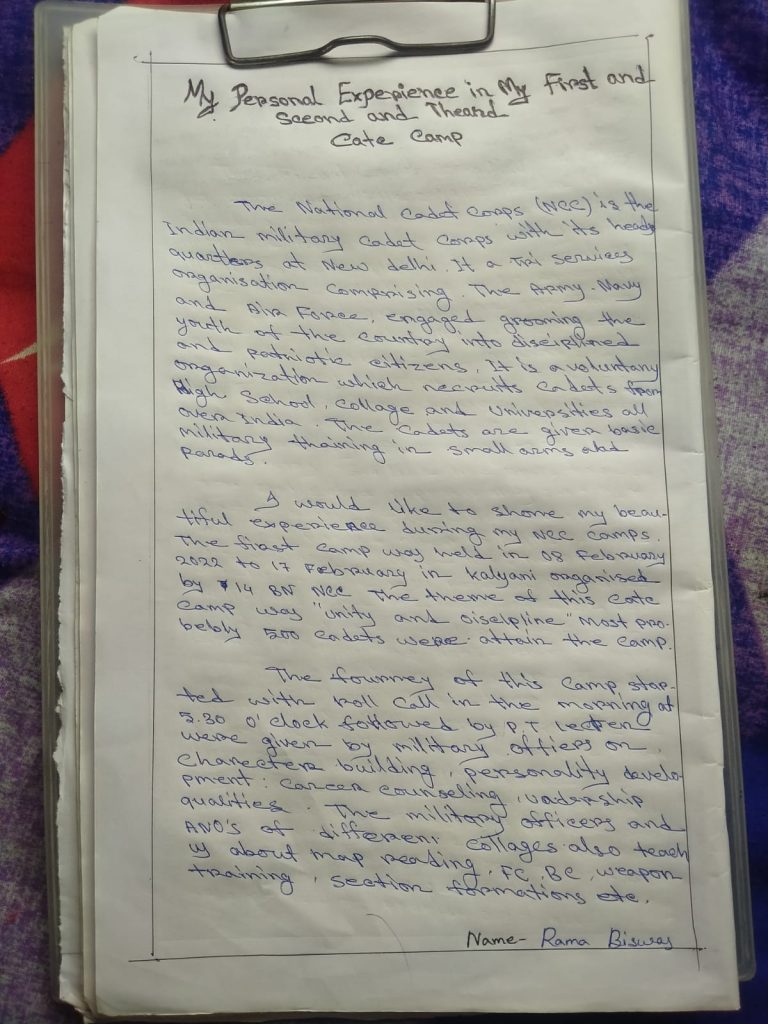 My Personal Experience in My First and
Second and Theard
Cate Camp
The National Cadet Corps (NCC) is the
Indian military cadet corps with its head
quarters at New delhi. It a Tri services
organisation comprising. The Army. Navy
and Air Force, engaged grooming the
youth of the country into disciplined
and patriotic citizens. It is a voluntary
organization which recruits cadets from
High School, Collage and Universities all
over India. The Cadets are given basic
military thaining in small arms abd
parads.
I would like to shore my beau-
tiful experience during my NCC camps.
The first camp was held in 08 February
2022 to 17 February in Kalyani organised
by 14 BN NCC The theme of this cate
camp was "unity and Discipline" most pro-
bebly 500 cadets were attain the camp.
The Journey of this Camp star-
ted with roll call in the morning at
5.30 O'clock followed by P.T lecten
were given by military officers on,
charecter building, personality develo-
pment: career counseling, leadership
qualities. The military officers and
ANO'S of different collages also teach
us about map reading, FC, BC, weapon
training, section formations etc.
Name- Rama Biswas